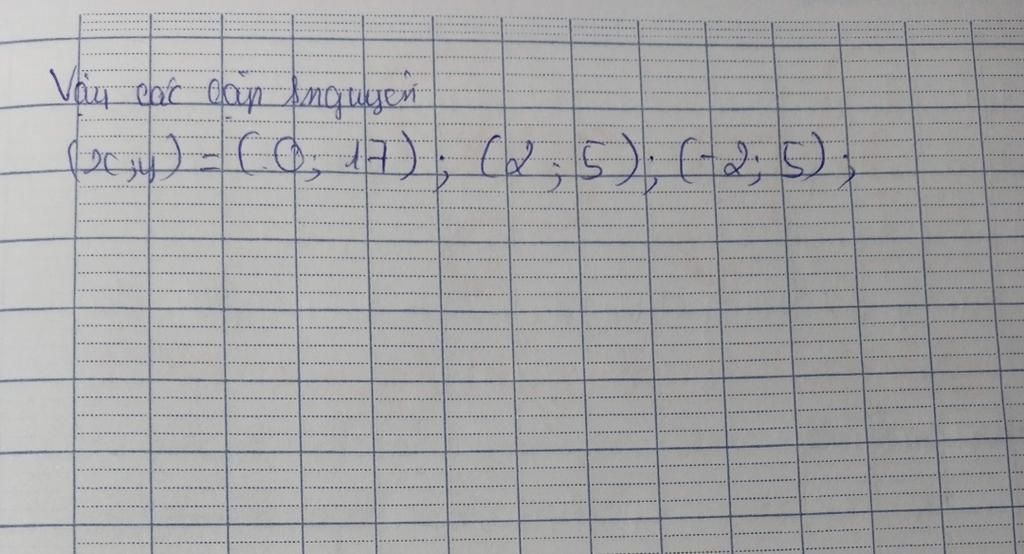 Vậy các cặp nguyên
(x;y) = (0; 17); (2; 5); (-2; 5);